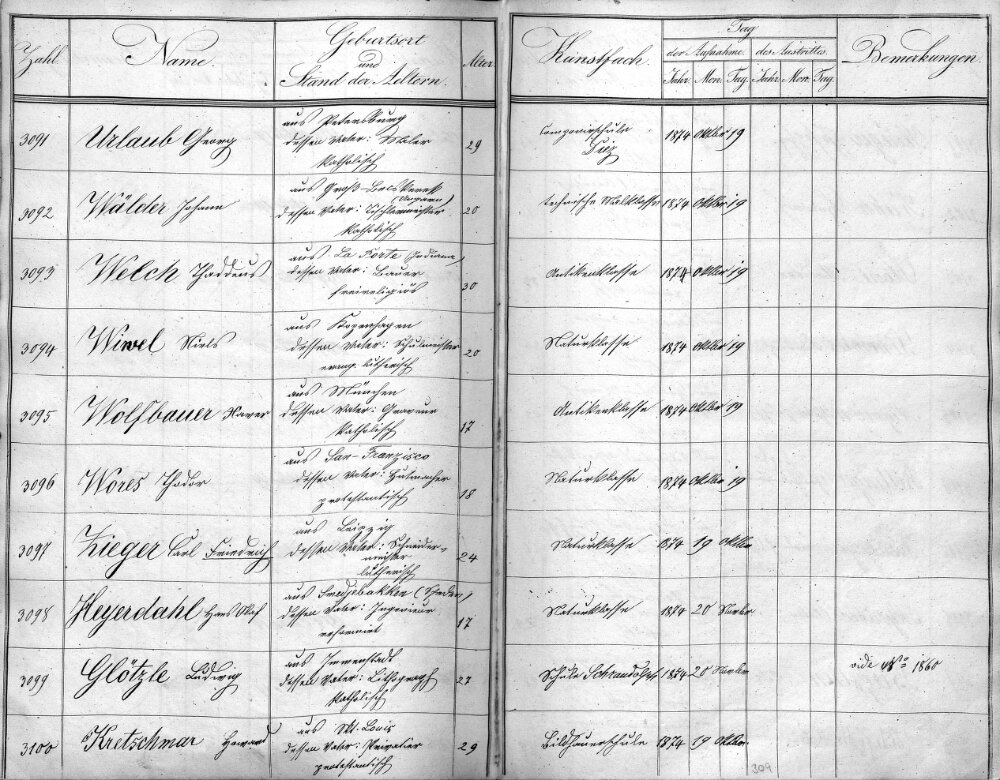 Zahl Name. Geburtsort und Stand der Aeltern. Alter Kunstfach. Tag der Aufnahme. des Austrittes. Bemerkungen.
Jahr. Mon. Tag. Jahr. Mon. Tag.
3091 Urlaub Georg aus Petersburg 29 Componirschule 1874 Oktbr 19
dessen Vater: Maler Diez
katholisch
3092 Wälder Johann aus Groß-Becskerek 20 technische Malklasse 1874 Oktbr 19
(Ungarn)
dessen Vater: Tischlermeister
katholisch
3093 Welch Thaddeus aus La Porte (Indiana) 30 Antikenklasse 1874 Oktbr 19
dessen Vater:
freireligiös
3094 Wiwel Niels aus Kopenhagen 20 Naturklasse 1874 Oktbr 19
dessen Vater: Schulmeister
evang. lutherisch
3095 Wolfbauer Xaver aus München 17 Antikenklasse 1874 Oktbr 19
dessen Vater: Graveur
katholisch
3096 Wores Thodor aus San-Franzisco 18 Naturklasse 1874 Oktbr 19
dessen Vater: Hutmacher
protestantisch
3097 Zieger Carl Friedrich aus Leipzig 24 Naturklasse 1874 19 Oktbr
dessen Vater: Schneider-
meister
lutherisch
3098 Heyerdahl Hans Olaf aus Smedjebakken (Schweden) 17 Naturklasse 1874 20 Novbr
dessen Vater: Ingenieur
reformirt
3099 Glötzle Ludwig aus Immenstadt 27 Schule Schraudolph 1874 20 Novbr vide No 1860
dessen Vater: Lithograph
katholisch
3100 Kretschmar Howard aus St. Louis 29 Bildhauerschule 1874 19 Oktbr
dessen Vater: Privatier
protestantisch
309